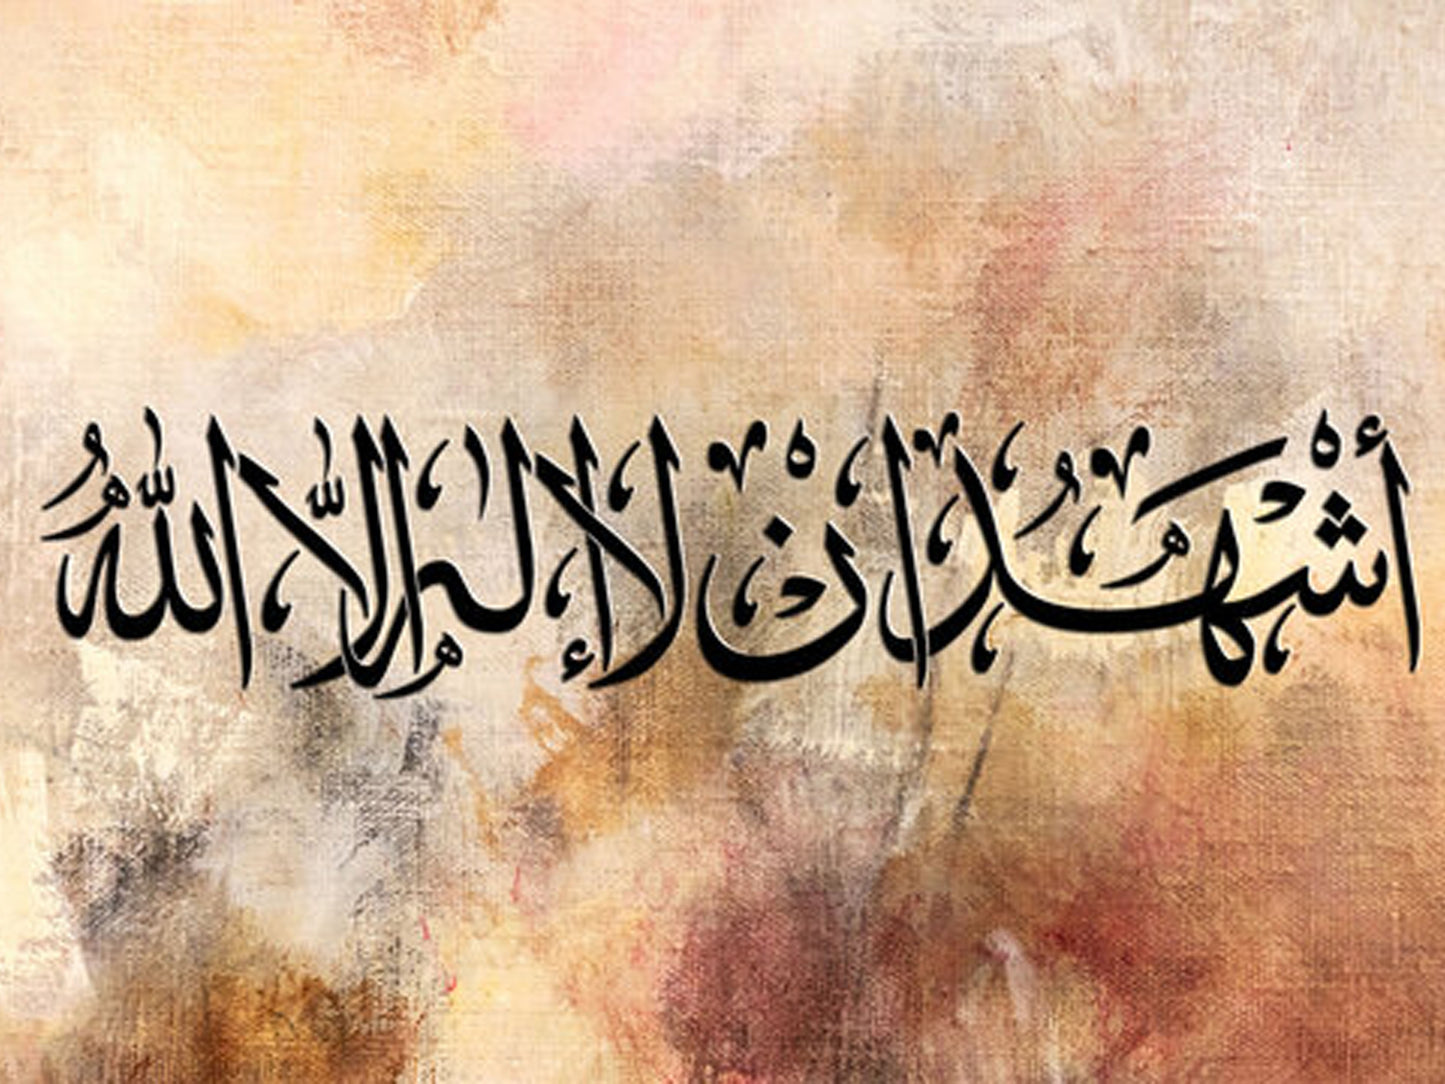 أشْهَدُ انْ لا إله إلّا اللهُ